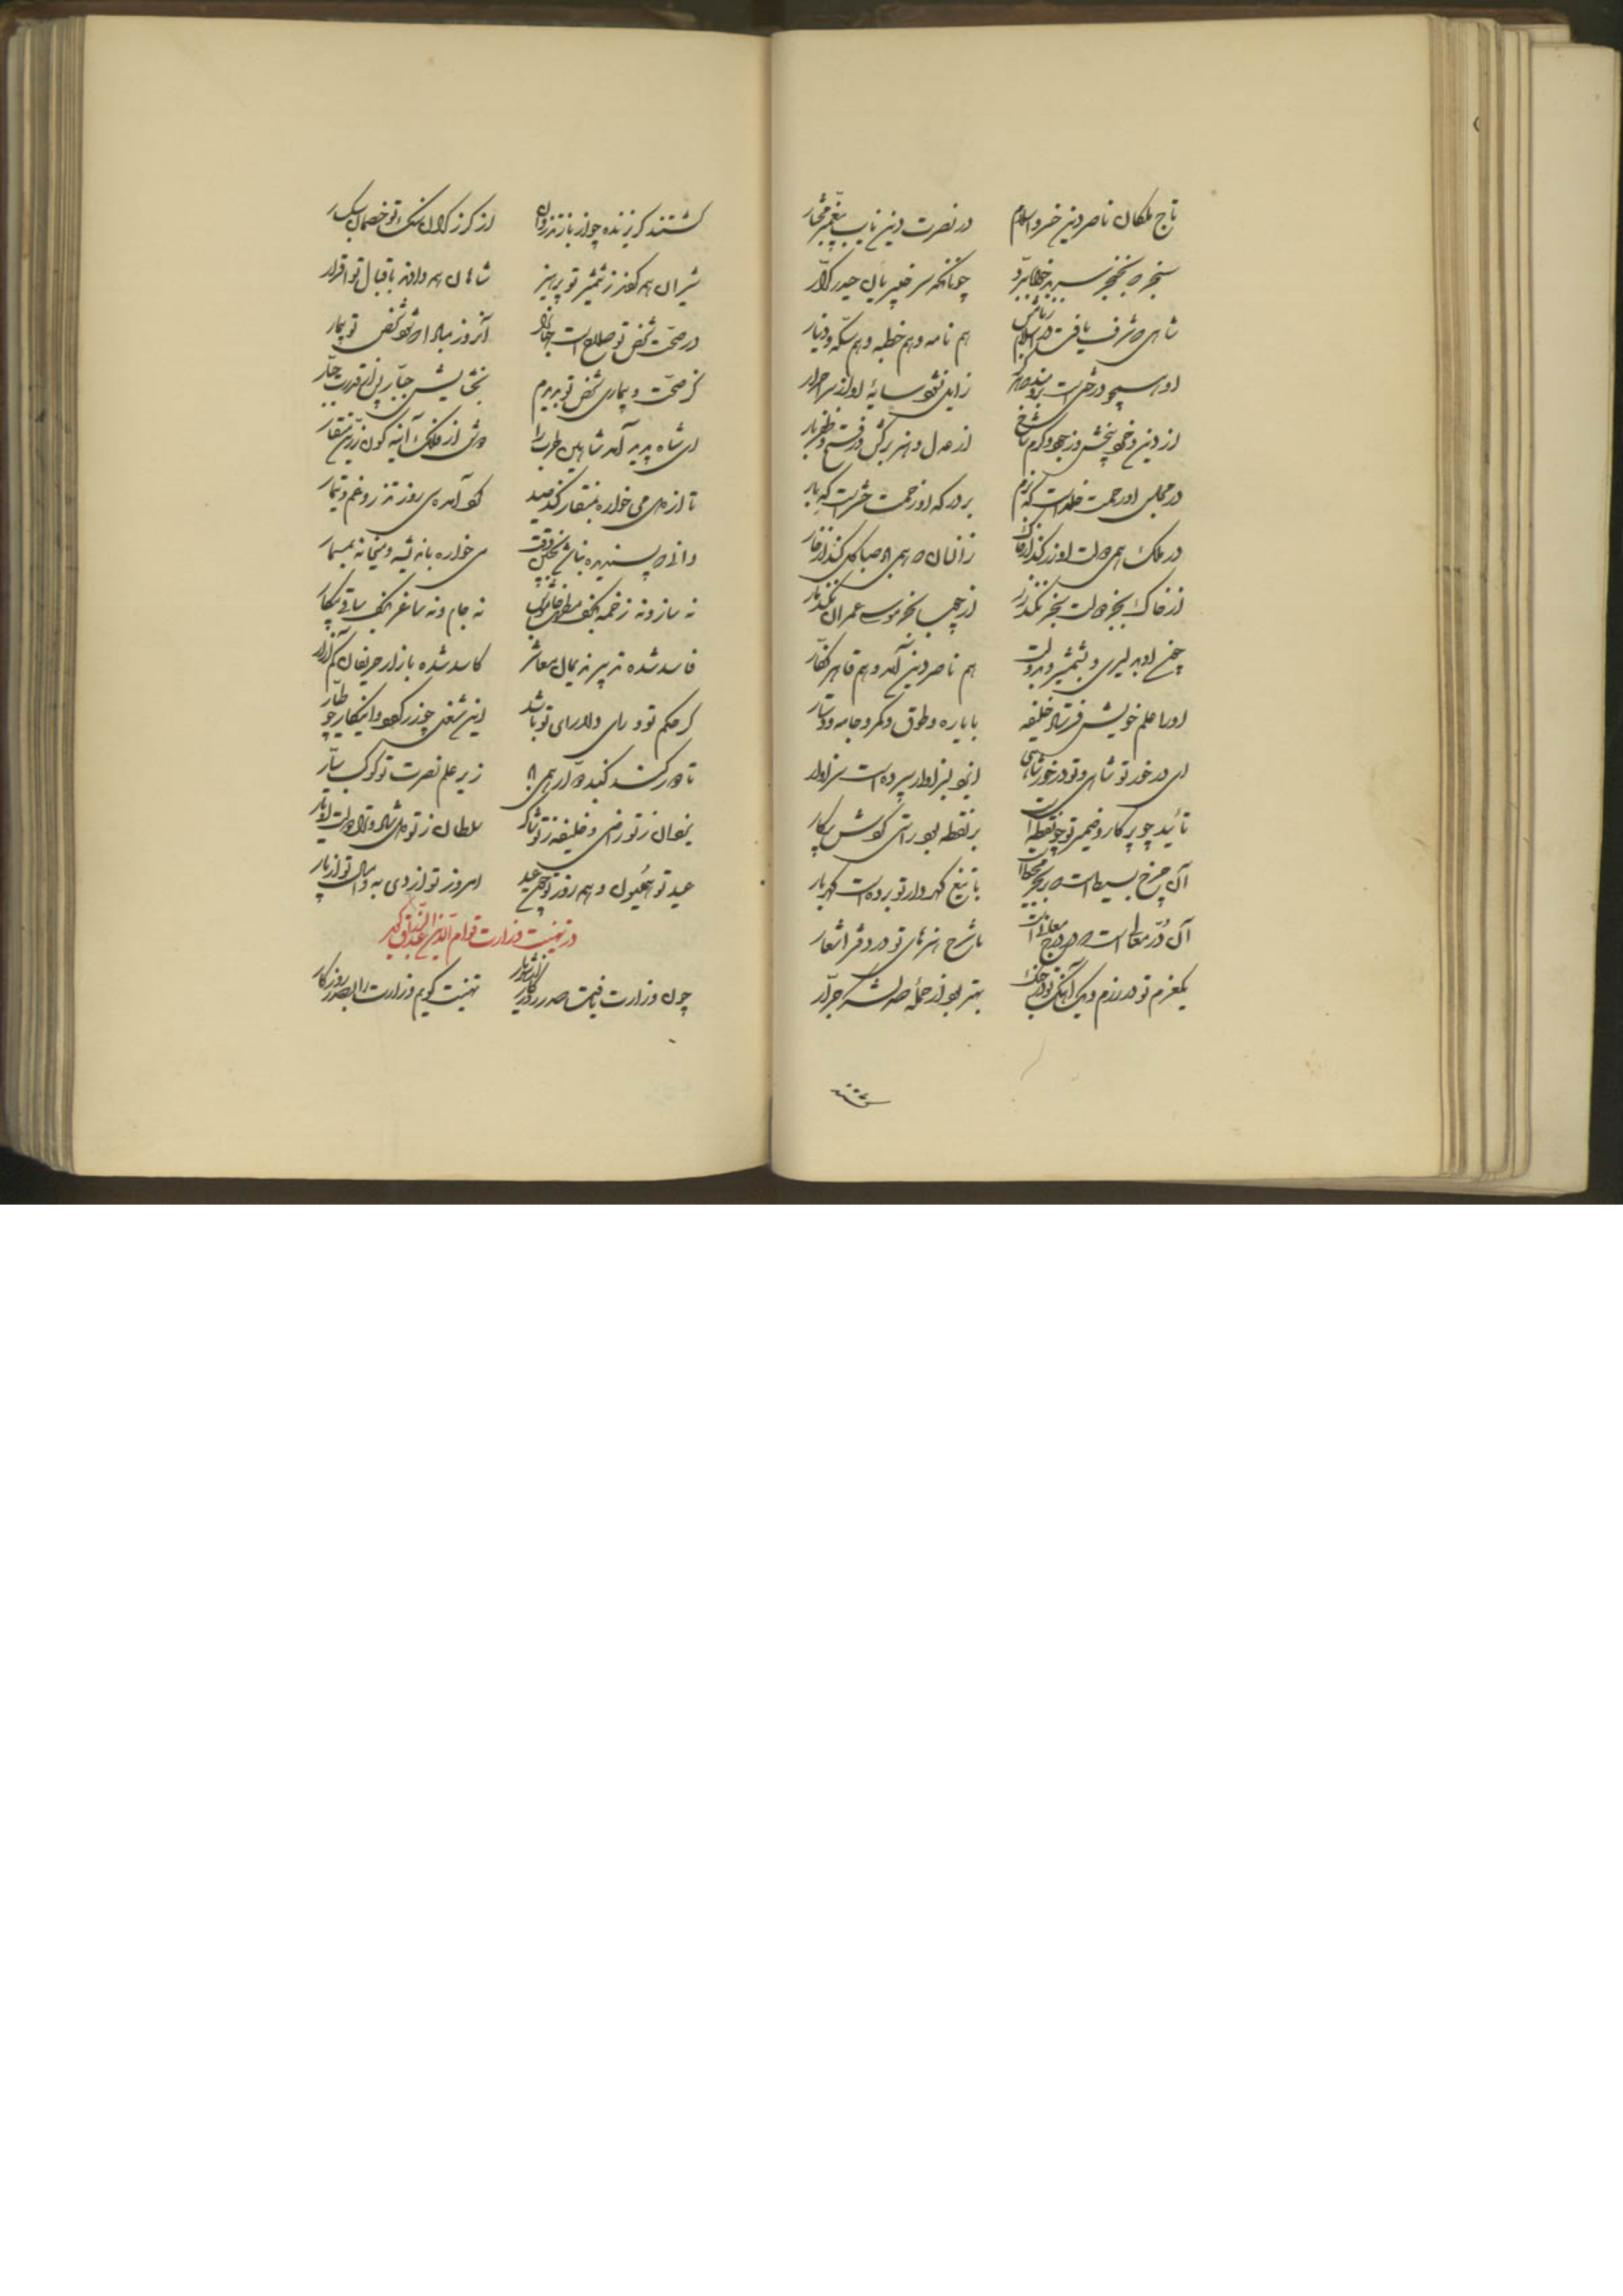 تاج ملکان ناصر دین خسرو اسلام در نصرت دین نایب پیغمبر مختار
سنجر که بخنجر سر بدخواه ببرد چونانکه سر خیبریان حیدر کرار
شاهی که شرف یافت در اسلام ز نامش هم نامه و هم خطبه و هم سکه و دینار
او همچو درختی است زایل نشود سایهٔ او از سر احرار
از دین و خرد بیخش و ز جود و کرم شاخ از عدل و هنر برگش و از فتح و ظفر بار
در مجلس او رحمت خلد است گه بزم بر درگه او زحمت حشر است گه بار
در ملک همی دولت او زر کند از خاک زانسان که همی باد صبا گل کند از خار
از خاک بجز دولت سنجر نکند زر از چوب بجز موسی عمران نکند مار
چون او به دلیری و بشمشیر و بدولت هم ناصر دین آمد و هم قاهر کفار
او را علم خویش فرستاد خلیفه با یاره و طوق و کمر و جامه و دستار
ای در خور تو شاهی و تو در خور شاهی ایزد بسزاوار سپرده است سزاوار
تأیید چو پرگار و ضمیر تو چو نقطه است بر نقطه بود راستی گردش پرگار
آن چرخ بسیط است که بحر محیط است با تیغ گهردار تو بر دست گهربار
آن در معالی است که در درج معانی است یا شرح هنرهای تو در دفتر اشعار
یک عزم تو در رزم و یک آهنگ تو در جنگ بهتر بود از حملهٔ صد لشکر جرار
گشتند
گشتند گریزنده چو از باز تذروان از گرز گران سنگ تو خصمان سبکسار
شیران همه کردند ز شمشیر تو پرهیز شاهان همه دادند باقبال تو اقرار
در صحت شخص تو صلاح است جهان را آنروز مباد که شود شخص تو بیمار
کز صحت و بیماری شخص تو بدیدیم بخشایش جبار پس از قدرت جبار
ای شاه پدید آمد شاهین طرب را دوش از فلک آینه‌گون زرین منقار
تا از دهن می‌خواره بمنقار کند صید کو آمد سی روز تذرو غم و تیمار
دانی که پسندیده نباشد بچنین وقت می‌خواره باندیشه و میخانه بمسمار
نه ساز و نه زخمه بکف مطرب چالاک نه جام و نه ساغر بکف ساقی بیکار
فاسد شده تدبیر ندیمان معاشر کاسد شده بازار حریفان کم آزار
گر حکم تو و رای دلارای تو باشد این شغل چو زر گردد و این کار چو طیار
تا دور کند گنبد دوار همی باد زیر علم نصرت تو کوکب سیار
یزدان ز تو راضی و خلیفه ز تو شاکر سلطان ز تو دلشاد و تو از دولت او یار
عید تو همایون و همه روز تو چون عید امروز تو از دی به و امسال تو از پار
در تهنیت وزارت قوام الدین گوید
چون وزارت یافت صدر روزگار تهنیت گویم وزارت را بصدر روزگار